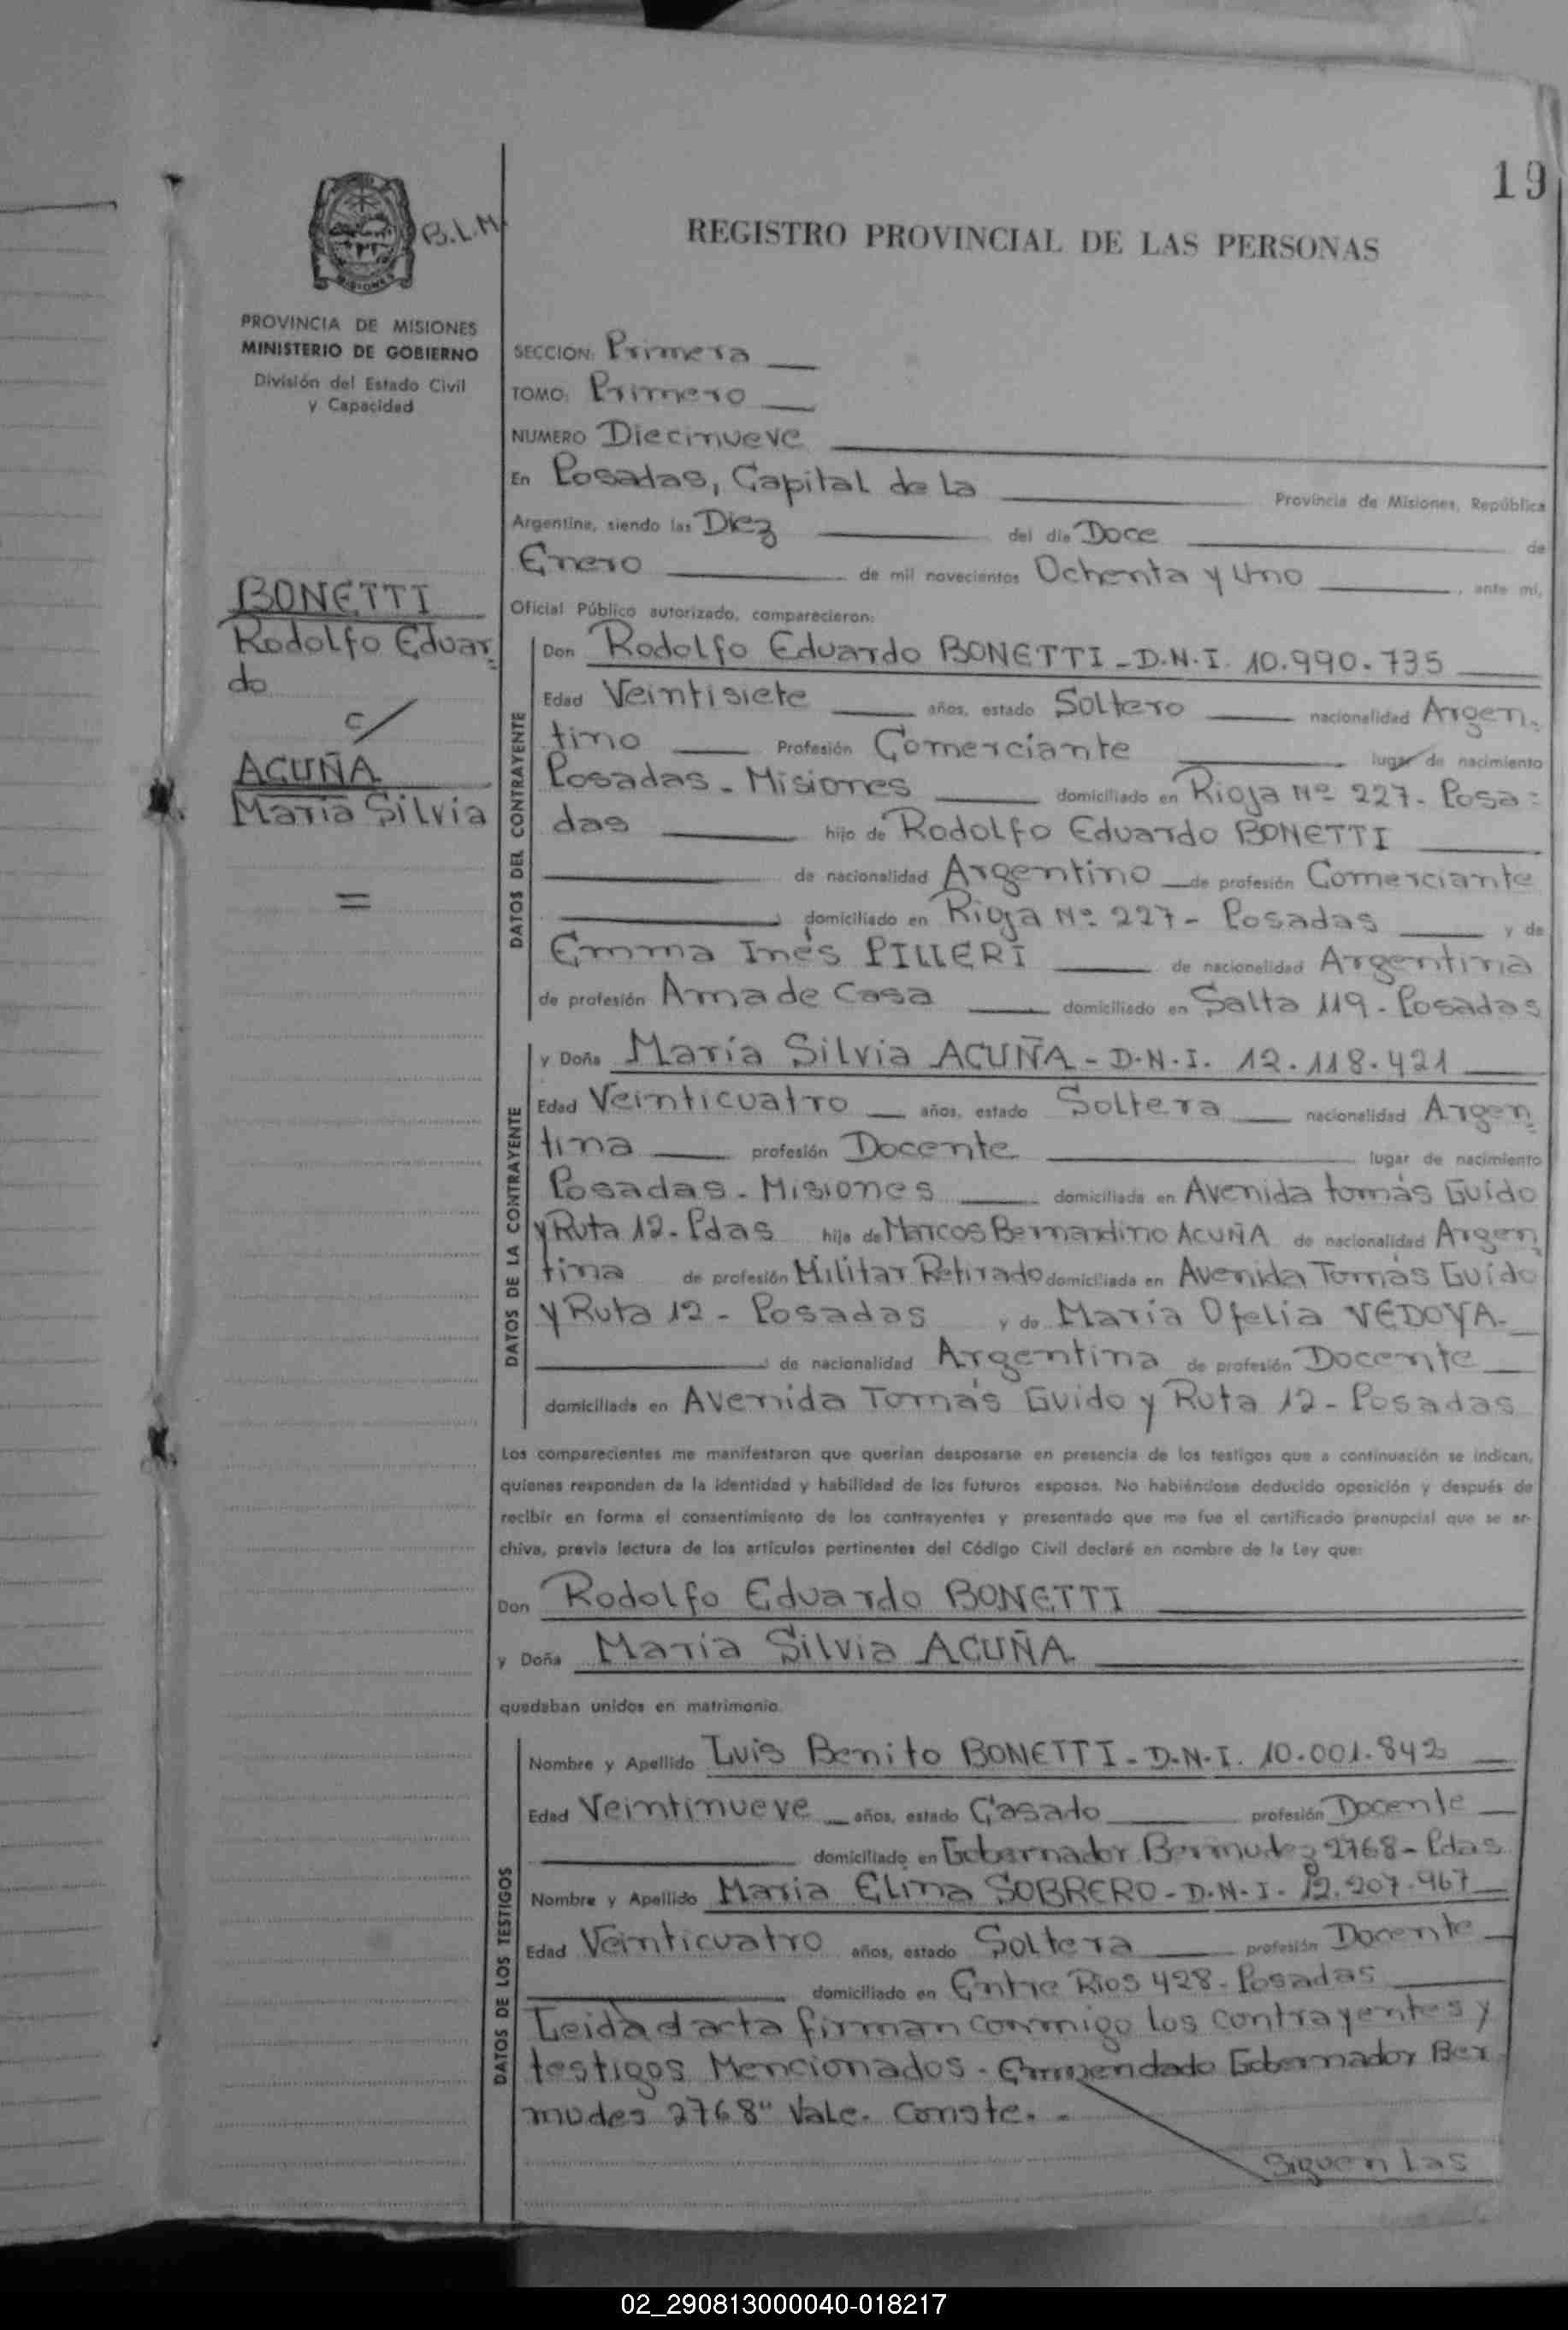 19
B.L.M
REGISTRO PROVINCIAL DE LAS PERSONAS
MISIONES
PROVINCIA DE MISIONES
MINISTERIO DE GOBIERNO
División del Estado Civil
y Capacidad
BONETTI
Rodolfo Eduar
do
c/
ACUÑA
María Silvia
=
SECCION: Primera
TOMO: Primero
NUMERO Diecinueve
En Posadas, Capital de la Provincia de Misiones, República
Argentina, siendo las Diez del día Doce de
Enero de mil novecientos Ochenta y Uno, ante mí,
Oficial Público autorizado, comparecieron:
DATOS DEL CONTRAYENTE
Don Rodolfo Eduardo BONETTI - D.N.I. 10.990.735
Edad Veintisiete años, estado Soltero nacionalidad Argen-
tino Profesión Comerciante lugar de nacimiento
Posadas - Misiones domiciliado en Rioja Nº 227 - Posa=
das hijo de Rodolfo Eduardo BONETTI
de nacionalidad Argentino de profesión Comerciante
domiciliado en Rioja Nº 227 - Posadas y de
Emma Inés PILLERI de nacionalidad Argentina
de profesión Ama de Casa domiciliado en Salta 119 - Posadas
DATOS DE LA CONTRAYENTE
y Doña María Silvia ACUÑA - D.N.I. 12.118.421
Edad Veinticuatro años, estado Soltera nacionalidad Argen
tina profesión Docente lugar de nacimiento
Posadas - Misiones domiciliada en Avenida tomás Guido
y Ruta 12 - Pdas hija de Marcos Bernardino ACUÑA de nacionalidad Argen
tina de profesión Militar Retirado domiciliado en Avenida Tomás Guido
y Ruta 12 - Posadas y de María Ofelia VEDOYA -
de nacionalidad Argentina de profesión Docente
domiciliada en Avenida Tomás Guido y Ruta 12 - Posadas
Los comparecientes me manifestaron que querían desposarse en presencia de los testigos que a continuación se indican,
quienes responden de la identidad y habilidad de los futuros esposos. No habiéndose deducido oposición y después de
recibir en forma el consentimiento de los contrayentes y presentado que me fue el certificado prenupcial que se ar-
chiva, previa lectura de los artículos pertinentes del Código Civil declaré en nombre de la Ley que:
Don Rodolfo Eduardo BONETTI
y Doña María Silvia ACUÑA
quedaban unidos en matrimonio.
DATOS DE LOS TESTIGOS
Nombre y Apellido Luis Benito BONETTI - D.N.I. 10.001.842
Edad Veintinueve años, estado Casado profesión Docente
domiciliado en Gobernador Bermudez 2768 - Pdas
Nombre y Apellido María Elina SOBRERO - D.N.I. 12.207.967
Edad Veinticuatro años, estado Soltera profesión Docente
domiciliado en Entre Rios 428 - Posadas
Leida el acta firman conmigo los contrayentes y
testigos Mencionados - Enmendado Gobernador Ber
mudes 2768" Vale. Conste. -
Siguen las
02_290813000040-018217